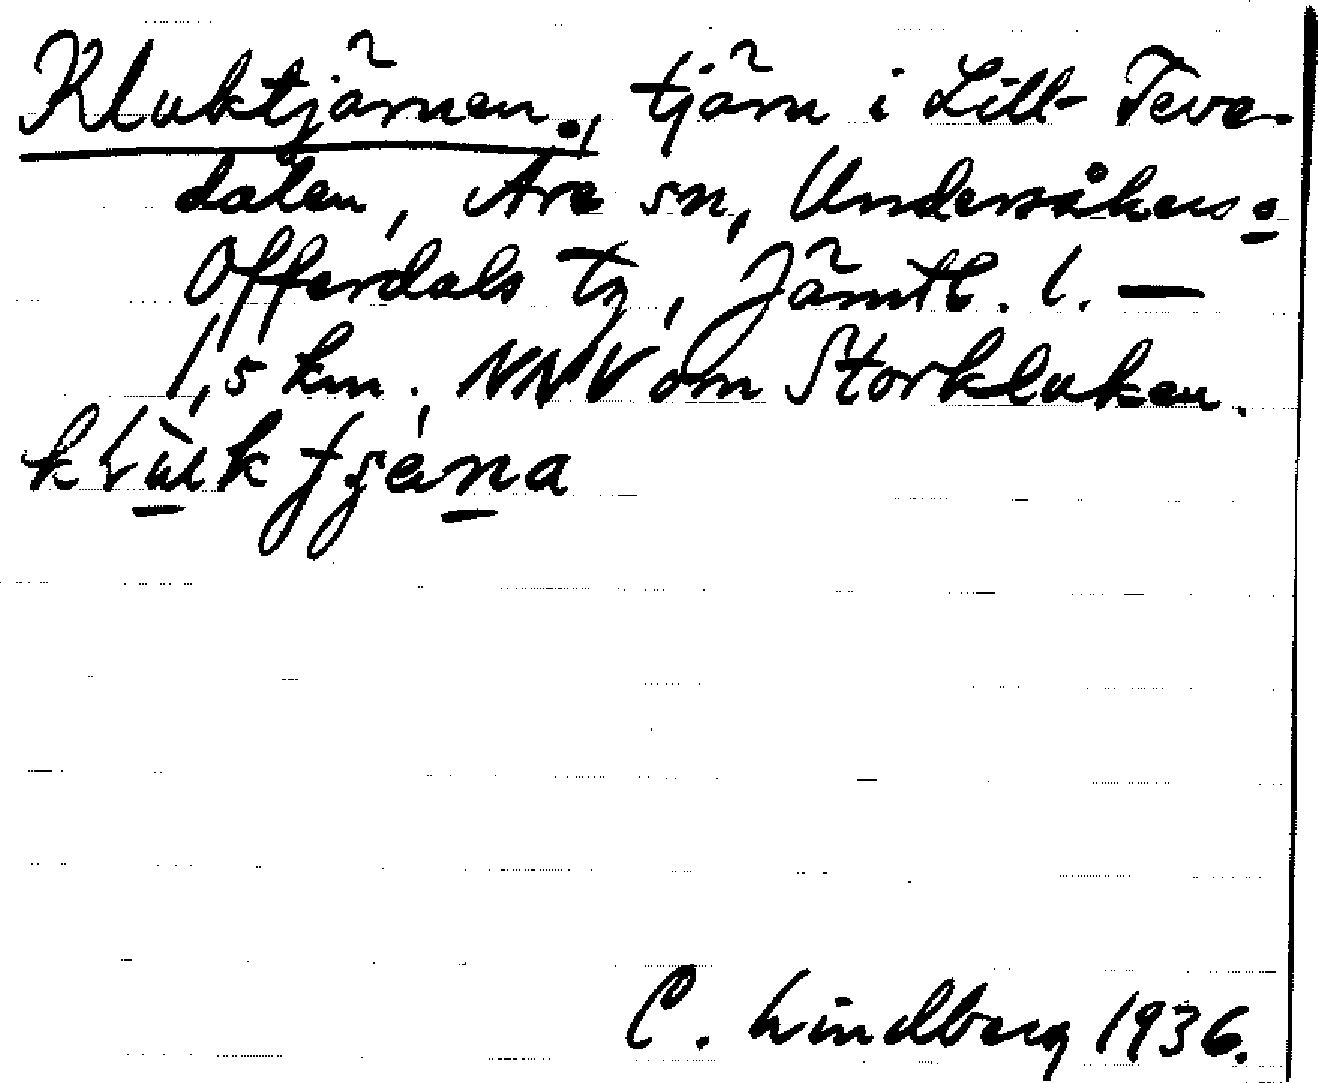 Kluktjärnen., tjärn i Lill-Teve-
dalen, Åre sn, Undersåkers o
Offerdals tg, Jämtl. l. —
1,5 km. NNV om Storkluken.
klùk tjena
C. Lindberg 1936.